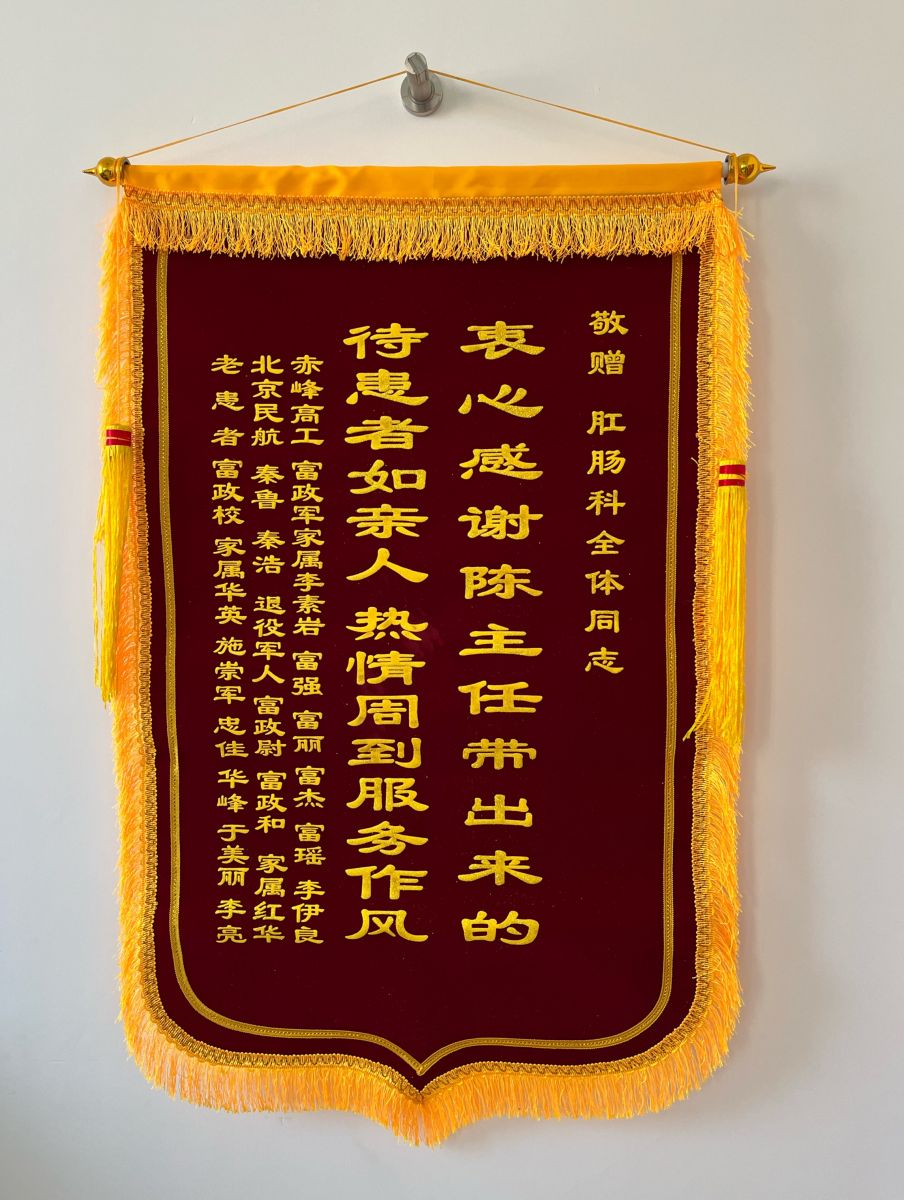 敬赠 肛肠科全体同志
衷心感谢陈主任带出来的
待患者如亲人 热情周到服务作风
赤峰高工 富政军家属李素岩 富强 富丽 富杰 富瑶 李伊良
北京民航 秦鲁 秦浩 退役军人 富政尉 富政和 家属红华
老患者 富政校 家属华英 施崇军 忠佳 华峰 于美丽 李亮